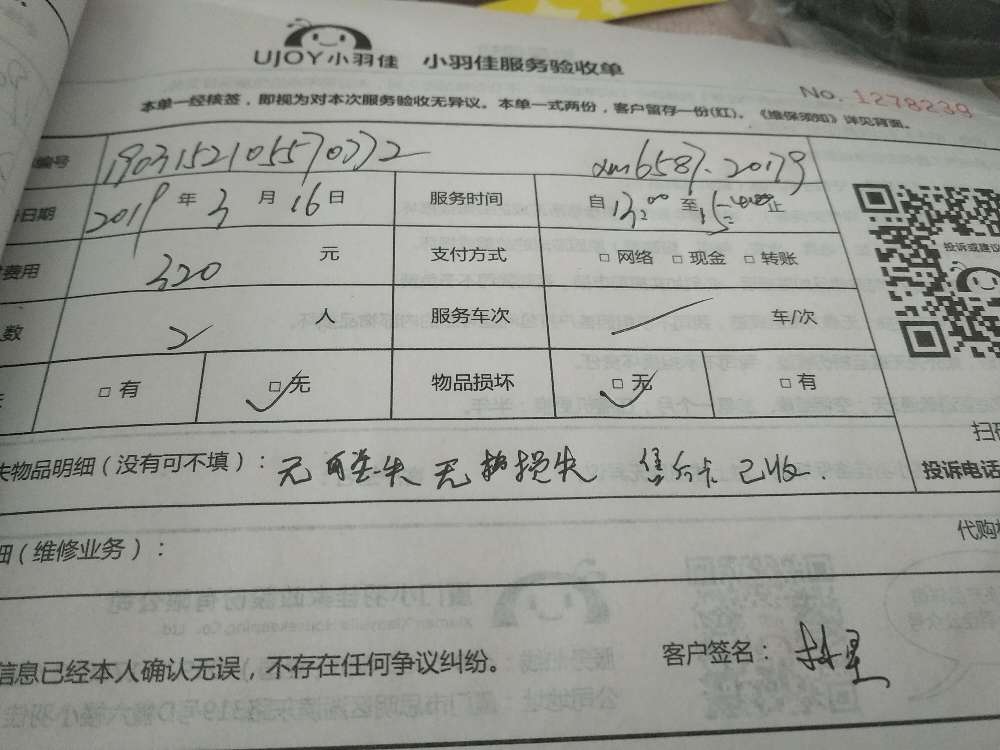 UJOY小羽佳 小羽佳服务验收单
No. 1278239
本单一经核签，即视为对本次服务验收无异议。本单一式两份，客户留存一份(红)。《维保须知》详见背面。
编号 190315210557037 2 xm6587.20179
日期 2019 年 3 月 16 日 服务时间 自 13:00 至 15: 止
费用 320 元 支付方式 □ 网络 □ 现金 □ 转账
数 2 人 服务车次 车/次
□ 有 □ 无 物品损坏 □ 无 □ 有
投诉或建议
扫码
投诉电话
失物品明细（没有可不填）： 无丢失 无物损失 卡 已收.
代购
细（维修业务）：
信息已经本人确认无误，不存在任何争议纠纷。
客户签名：